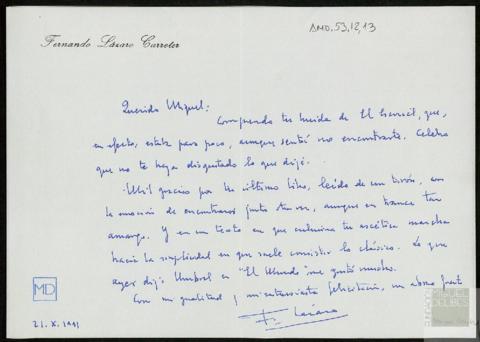 AMD, 53, 12, 13
Fernando Lázaro Carreter
Querido Miguel:
Comprendo tu huida de El Escorial, que,
en efecto, estaba para poco, aunque sentí no encontrarte. Celebro
que no te haya disgustado lo que dije.
Mil gracias por tu último libro, leído de un tirón, con
la emoción de encontrarnos junto a tu voz, aunque en trance tan
amargo. Y en un texto en que culmina tu ascética marcha
hacia la simplicidad en que suele consistir lo clásico. Lo que
ayer dijo Umbral en "El Mundo" me gustó mucho.
Con mi gratitud y mi entusiasta felicitación, un abrazo fuerte
F. Lázaro
MD
21. X. 1991
FUNDACIÓN
MIGUEL
DELIBES